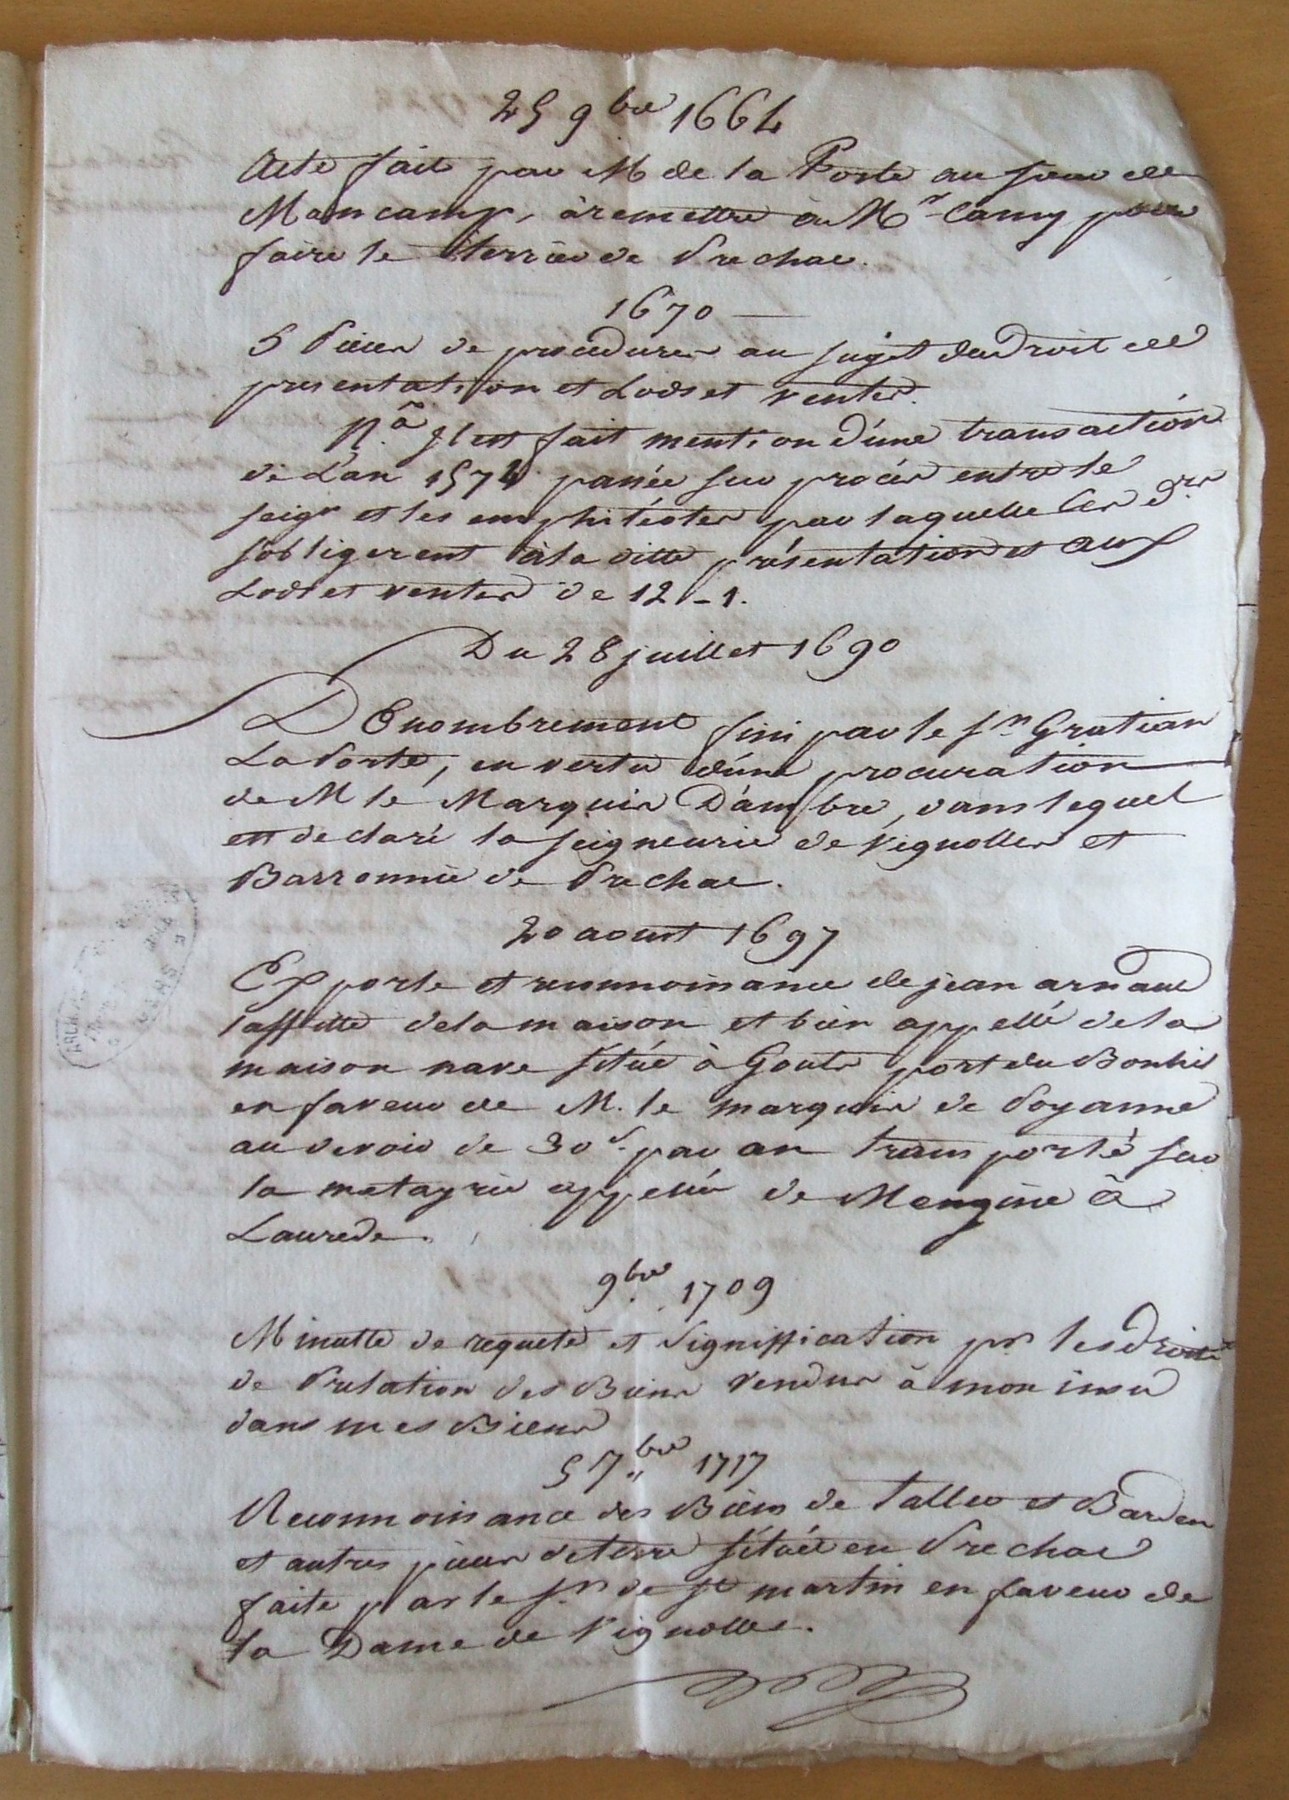 25 9bre 1664
Acte fait par M de la Porte au sieur de
Moncamp, à remettre à Mr Camy pour
faire le terrier de Prechac.
1670
5 Pieces de procedures au sujet du Droit de
presentation et Lods et ventes.
Na Il est fait mention d'une transaction
de L'an 1574 passée sur procés entre le
seigr et les emphitéotes par laquelle Ces drs
s'obligerent à la ditte présentation et aux
Lods et ventes de 12 - 1.
Du 28 juillet 1690
Dénombrement fini par le Sr Gratian
La Porte, en vertu d'une procuration
de M le Marquis D'ambre, dans lequel
est declaré la seigneurie de Vignolles et
Barronnie de Prechac.
20 aoust 1697
Exporle et reconnoissance de jean arnaud
laffitte de la maison et bien appellé de la
maison nave sitüé à Gouts port du Bonhil
en faveur de M. le marquis de Poyanne
au devoir de 30s. par an transporté sur
la metayrie appellée de Mengine à
Laurede.
9bre 1709
Minutte de requete et signiffication pr les Droits
de Prelation des Biens vendus à mon insu
dans mes Biens
5 7bre 1717
Reconnoissance des Biens de Talleo et Barden
et autres pieces de terre sitüée en Prechac
faite par le Sr de St martin en faveur de
la Dame de Vignolles.